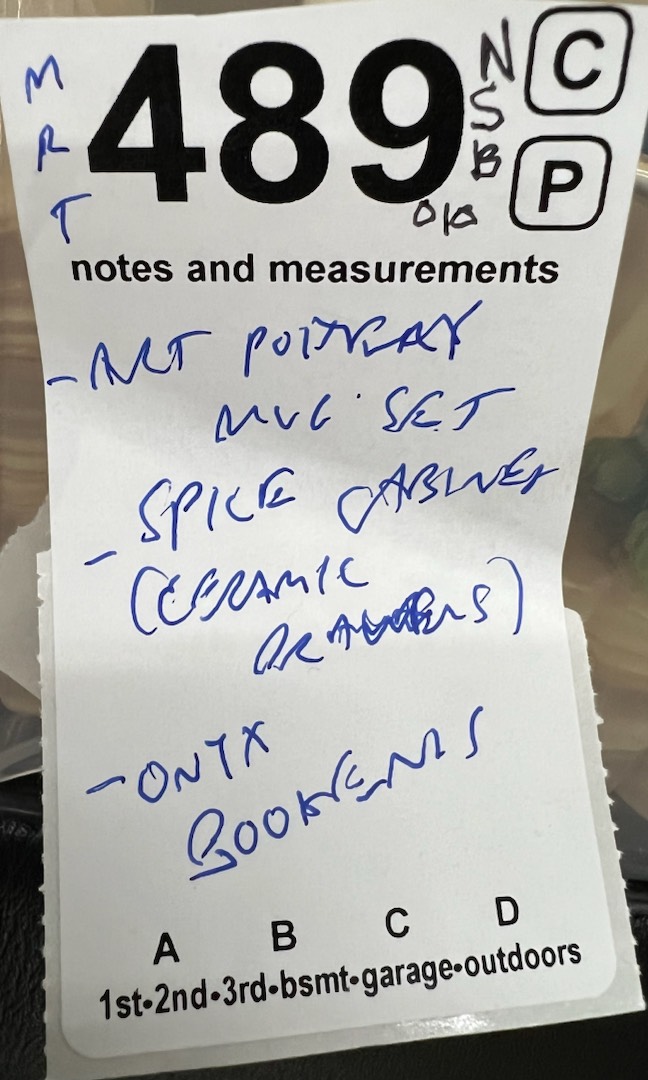 M
R
T
489
N
S
B
C
P
notes and measurements
- ART POTTERY
MUG SET
- SPICE CABINET
(CERAMIC
DRAWERS)
- ONYX
BOOKENDS
A B C D
1st•2nd•3rd•bsmt•garage•outdoors